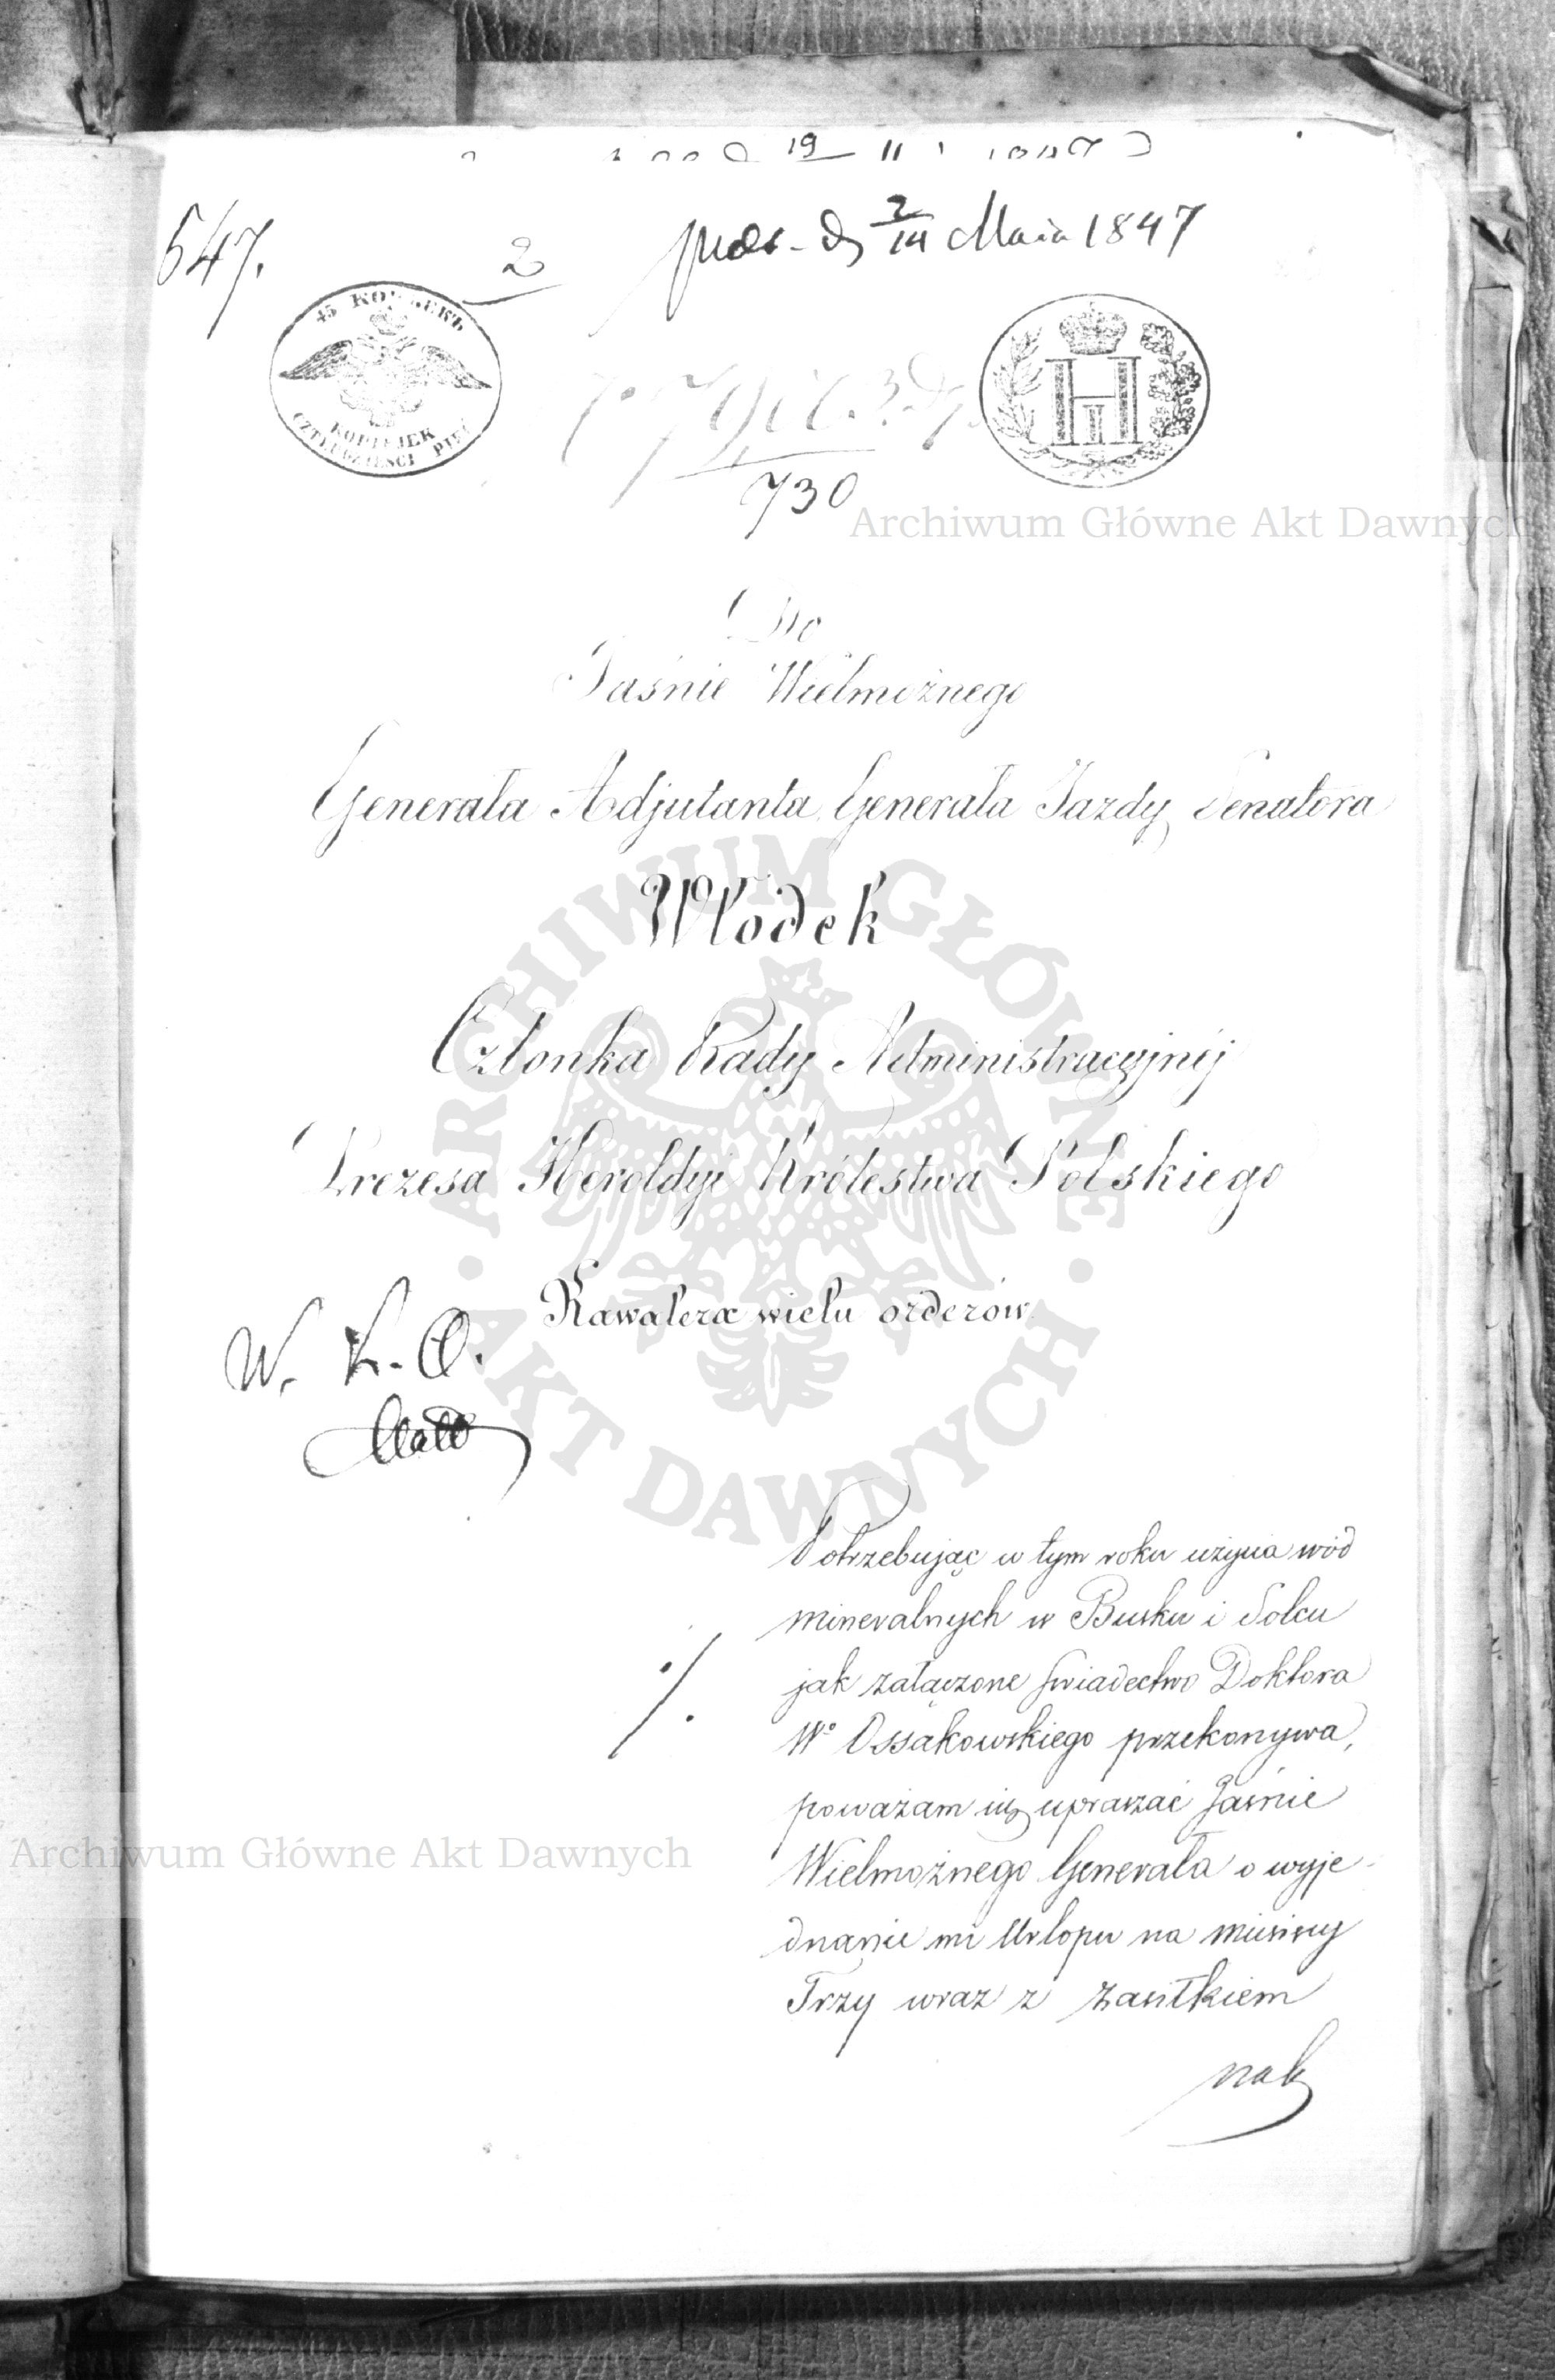 19 11
prds. d. 2/14 Maia 1847
547.
2
45 КОПѢЕКЪ
KOPIEJEK
CZTERDZIEŚCI PIĘĆ
H II
730
Archiwum Główne Akt Dawnych
Do
Jaśnie Wielmożnego
Generała Adjutanta Generała Jazdy, Senatora
Włodek
Członka Rady Administracyjnéj
Prezesa Heroldyi Królestwa Polskiego
Kawalera wielu orderów
W. K. O.
ARCHIWUM GŁÓWNE
AKT DAWNYCH
Potrzebując w tym roku użycia wód
mineralnych w Busku i Solcu
jak załączone świadectwo Doktora
Wo Ossakowskiego przekonywa,
poważam się upraszać Jaśnie
Wielmożnego Generała o wyje-
dnanie mi Urlopu na miesięcy
Trzy wraz z zasiłkiem
Archiwum Główne Akt Dawnych